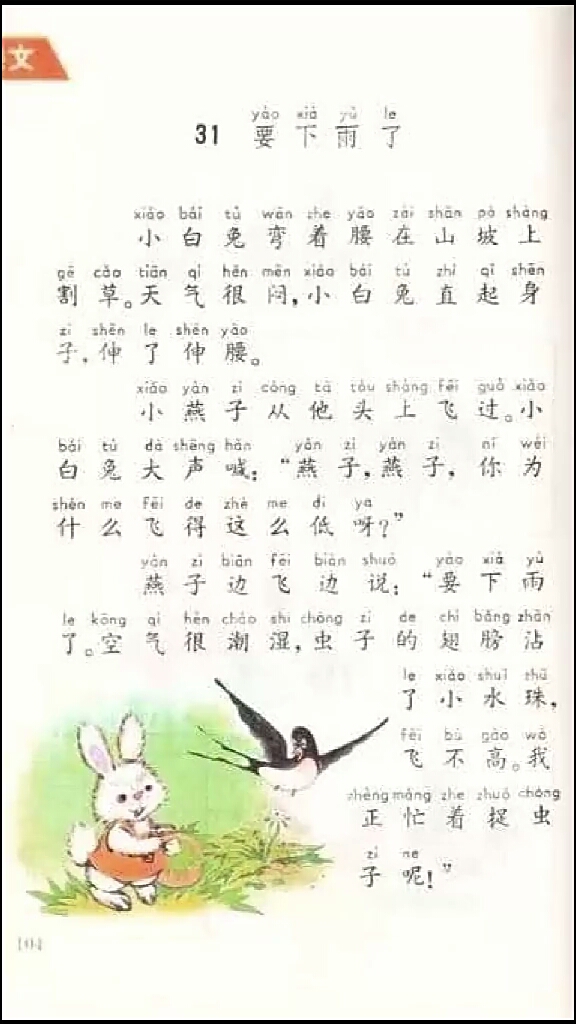 文
yào xià yǔ le
31 要下雨了
xiǎo bái tù wān zhe yāo zài shān pō shàng
小白兔弯着腰在山坡上
gē cǎo tiān qì hěn mēn xiǎo bái tù zhí qǐ shēn
割草。天气很闷,小白兔直起身
zi shēn le shēn yāo
子,伸了伸腰。
xiǎo yàn zi cóng tā tóu shàng fēi guò xiǎo
小燕子从他头上飞过。小
bái tù dà shēng hǎn yàn zi yàn zi nǐ wèi
白兔大声喊:“燕子,燕子,你为
shén me fēi de zhè me dī ya
什么飞得这么低呀?”
yàn zi biān fēi biān shuō yào xià yǔ
燕子边飞边说:“要下雨
le kōng qì hěn cháo shī chóng zi de chì bǎng zhān
了。空气很潮湿,虫子的翅膀沾
le xiǎo shuǐ zhū
了小水珠,
fēi bù gāo wǒ
飞不高。我
zhèng máng zhe zhuō chóng
正忙着捉虫
zi ne
子呢!”